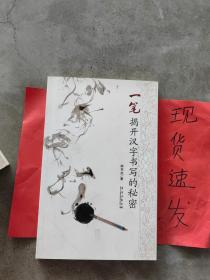 一笔
揭开汉字书写的秘密
现货速发